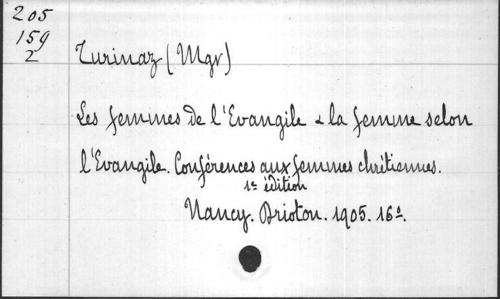 205
159
2
Turinaz (Mgr)
Les femmes de l'Evangile & la femme selon
l'Evangile. Conférences aux femmes chrétiennes.
1e édition
Nancy. Drioton. 1905. 16º.